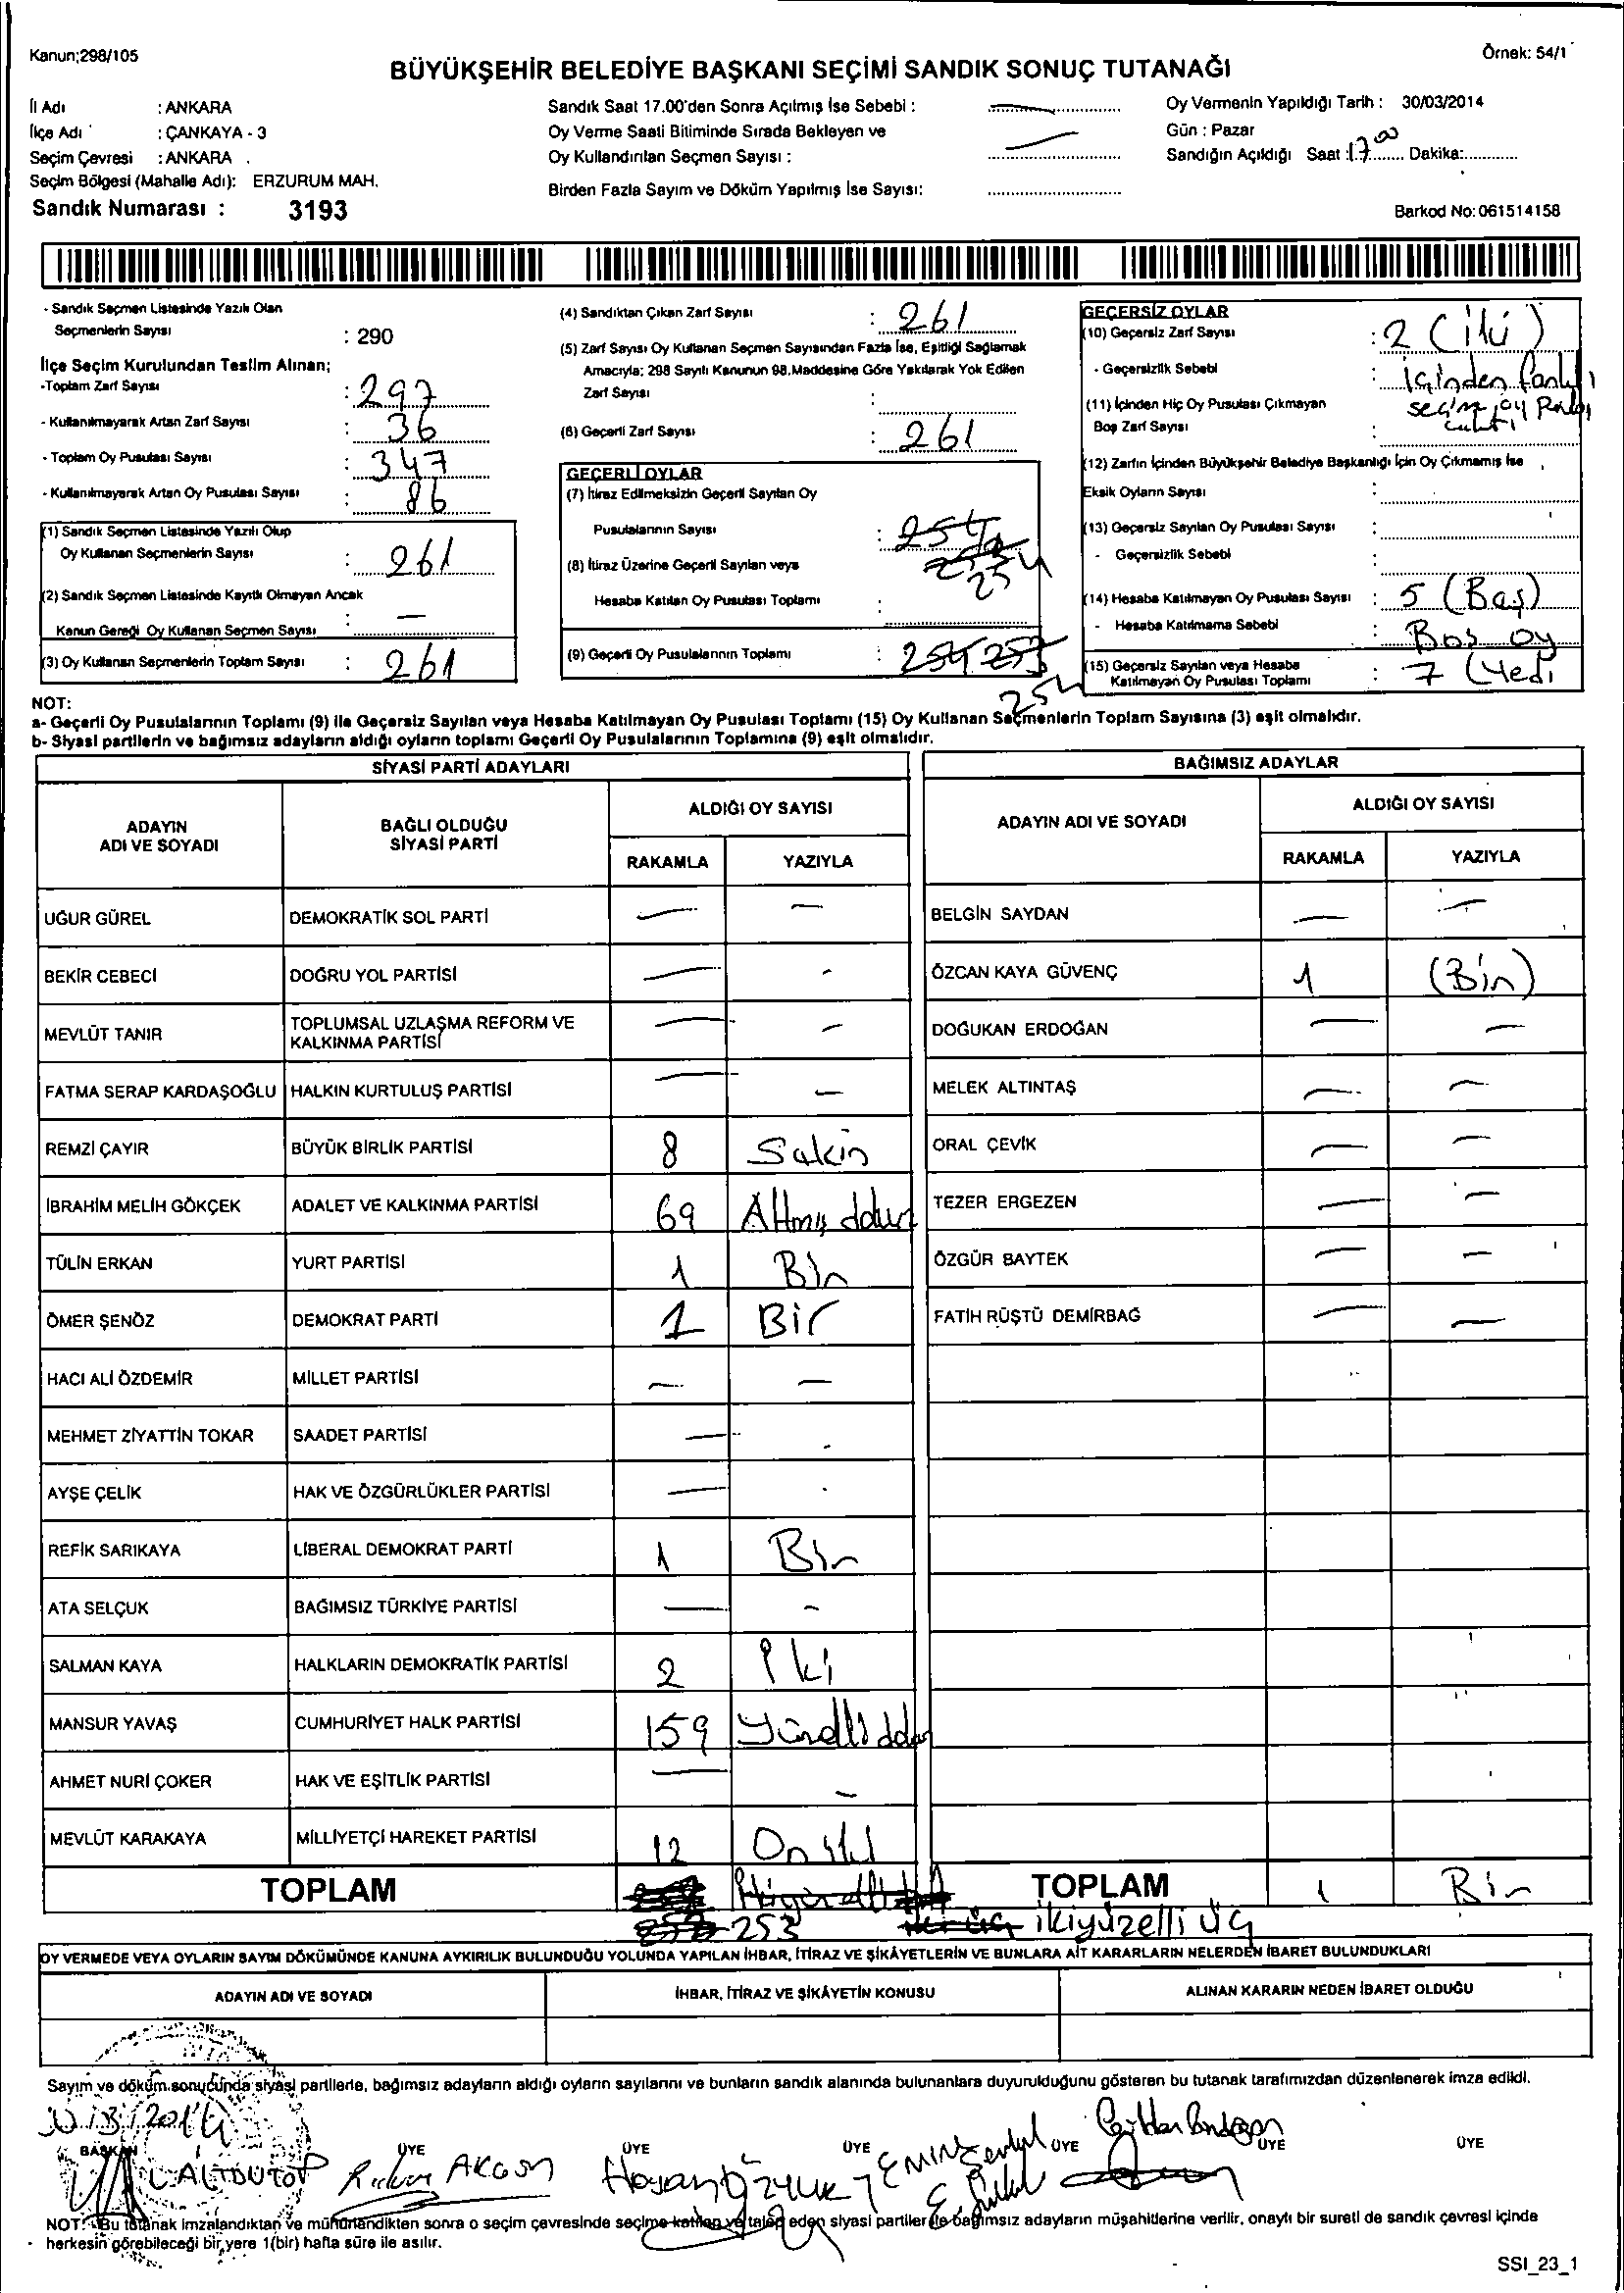 Kanun;298/105
Örnek: 54/1
BÜYÜKŞEHİR BELEDİYE BAŞKANI SEÇİMİ SANDIK SONUÇ TUTANAĞI
İl Adı : ANKARA
İlçe Adı : ÇANKAYA - 3
Seçim Çevresi : ANKARA
Seçim Bölgesi (Mahalle Adı): ERZURUM MAH.
Sandık Numarası : 3193
Sandık Saat 17.00'den Sonra Açılmış İse Sebebi :
Oy Verme Saati Bitiminde Sırada Bekleyen ve
Oy Kullandırılan Seçmen Sayısı :
Birden Fazla Sayım ve Döküm Yapılmış İse Sayısı:
Oy Vermenin Yapıldığı Tarih : 30/03/2014
Gün : Pazar
Sandığın Açıldığı Saat :17 00 Dakika:
Barkod No: 061514158
- Sandık Seçmen Listesinde Yazılı Olan
Seçmenlerin Sayısı : 290
İlçe Seçim Kurulundan Teslim Alınan;
-Toplam Zarf Sayısı : 297
- Kullanılmayarak Artan Zarf Sayısı : 36
- Toplam Oy Pusulası Sayısı : 347
- Kullanılmayarak Artan Oy Pusulası Sayısı : 86
(1) Sandık Seçmen Listesinde Yazılı Olup
Oy Kullanan Seçmenlerin Sayısı : 261
(2) Sandık Seçmen Listesinde Kayıtlı Olmayan Ancak
Kanun Gereği Oy Kullanan Seçmen Sayısı : —
(3) Oy Kullanan Seçmenlerin Toplam Sayısı : 261
(4) Sandıktan Çıkan Zarf Sayısı : 261
(5) Zarf Sayısı Oy Kullanan Seçmen Sayısından Fazla İse, Eşitliği Sağlamak
Amacıyla; 298 Sayılı Kanunun 98.Maddesine Göre Yakılarak Yok Edilen
Zarf Sayısı :
(6) Geçerli Zarf Sayısı : 261
GEÇERLİ OYLAR
(7) İtiraz Edilmeksizin Geçerli Sayılan Oy
Pusulalarının Sayısı : 254
(8) İtiraz Üzerine Geçerli Sayılan veya
Hesaba Katılan Oy Pusulası Toplamı :
(9) Geçerli Oy Pusulalarının Toplamı : 254 253
254
GEÇERSİZ OYLAR
(10) Geçersiz Zarf Sayısı : 2 (iki)
- Geçersizlik Sebebi : içinden farklı
seçim oy
(11) İçinden Hiç Oy Pusulası Çıkmayan
Boş Zarf Sayısı :
(12) Zarfın İçinden Büyükşehir Belediye Başkanlığı İçin Oy Çıkmamış İse
Eksik Oyların Sayısı :
(13) Geçersiz Sayılan Oy Pusulası Sayısı :
- Geçersizlik Sebebi :
(14) Hesaba Katılmayan Oy Pusulası Sayısı : 5 (Beş)
- Hesaba Katılmama Sebebi : Boş oy
(15) Geçersiz Sayılan veya Hesaba
Katılmayan Oy Pusulası Toplamı : 7 (Yedi
NOT:
a- Geçerli Oy Pusulalarının Toplamı (9) ile Geçersiz Sayılan veya Hesaba Katılmayan Oy Pusulası Toplamı (15) Oy Kullanan Seçmenlerin Toplam Sayısına (3) eşit olmalıdır.
b- Siyasi partilerin ve bağımsız adayların aldığı oyların toplamı Geçerli Oy Pusulalarının Toplamına (9) eşit olmalıdır.
SİYASİ PARTİ ADAYLARI
ADAYIN ADI VE SOYADI BAĞLI OLDUĞU SİYASİ PARTİ ALDIĞI OY SAYISI
RAKAMLA YAZIYLA
UĞUR GÜREL DEMOKRATİK SOL PARTİ — —
BEKİR CEBECİ DOĞRU YOL PARTİSİ — -
MEVLÜT TANIR TOPLUMSAL UZLAŞMA REFORM VE KALKINMA PARTİSİ — —
FATMA SERAP KARDAŞOĞLU HALKIN KURTULUŞ PARTİSİ — —
REMZİ ÇAYIR BÜYÜK BİRLİK PARTİSİ 8 Sekiz
İBRAHİM MELİH GÖKÇEK ADALET VE KALKINMA PARTİSİ 69 Altmış dokuz
TÜLİN ERKAN YURT PARTİSİ 1 Bir
ÖMER ŞENÖZ DEMOKRAT PARTİ 1 Bir
HACI ALİ ÖZDEMİR MİLLET PARTİSİ — —
MEHMET ZİYATTİN TOKAR SAADET PARTİSİ — -
AYŞE ÇELİK HAK VE ÖZGÜRLÜKLER PARTİSİ —
REFİK SARIKAYA LİBERAL DEMOKRAT PARTİ 1 Bir
ATA SELÇUK BAĞIMSIZ TÜRKİYE PARTİSİ — -
SALMAN KAYA HALKLARIN DEMOKRATİK PARTİSİ 2 iki
MANSUR YAVAŞ CUMHURİYET HALK PARTİSİ 159 Yüzelli dokuz
AHMET NURİ ÇOKER HAK VE EŞİTLİK PARTİSİ — —
MEVLÜT KARAKAYA MİLLİYETÇİ HAREKET PARTİSİ 12 On iki
TOPLAM
253 ikiyüzelli üç
BAĞIMSIZ ADAYLAR
ADAYIN ADI VE SOYADI ALDIĞI OY SAYISI
RAKAMLA YAZIYLA
BELGİN SAYDAN — —
ÖZCAN KAYA GÜVENÇ 1 (Bir)
DOĞUKAN ERDOĞAN — —
MELEK ALTINTAŞ — —
ORAL ÇEVİK — —
TEZER ERGEZEN — —
ÖZGÜR BAYTEK — —
FATİH RÜŞTÜ DEMİRBAĞ — —
TOPLAM 1 Bir
OY VERMEDE VEYA OYLARIN SAYIM DÖKÜMÜNDE KANUNA AYKIRILIK BULUNDUĞU YOLUNDA YAPILAN İHBAR, İTİRAZ VE ŞİKÂYETLERİN VE BUNLARA AİT KARARLARIN NELERDEN İBARET BULUNDUKLARI
ADAYIN ADI VE SOYADI İHBAR, İTİRAZ VE ŞİKÂYETİN KONUSU ALINAN KARARIN NEDEN İBARET OLDUĞU
Sayım ve döküm sonucunda siyasi partilerle, bağımsız adayların aldığı oyların sayılarını ve bunların sandık alanında bulunanlara duyurulduğunu gösteren bu tutanak tarafımızdan düzenlenerek imza edildi.
30/3/2014
BAŞKAN ÜYE ÜYE ÜYE ÜYE ÜYE ÜYE
ALTDUTOP AKGÜN
NOT: Bu tutanak imzalandıktan ve mühürlendikten sonra o seçim çevresinde seçime katılan ve talep eden siyasi partiler ile bağımsız adayların müşahitlerine verilir, onaylı bir sureti de sandık çevresi içinde
herkesin görebileceği bir yere 1(bir) hafta süre ile asılır.
SSI_23_1